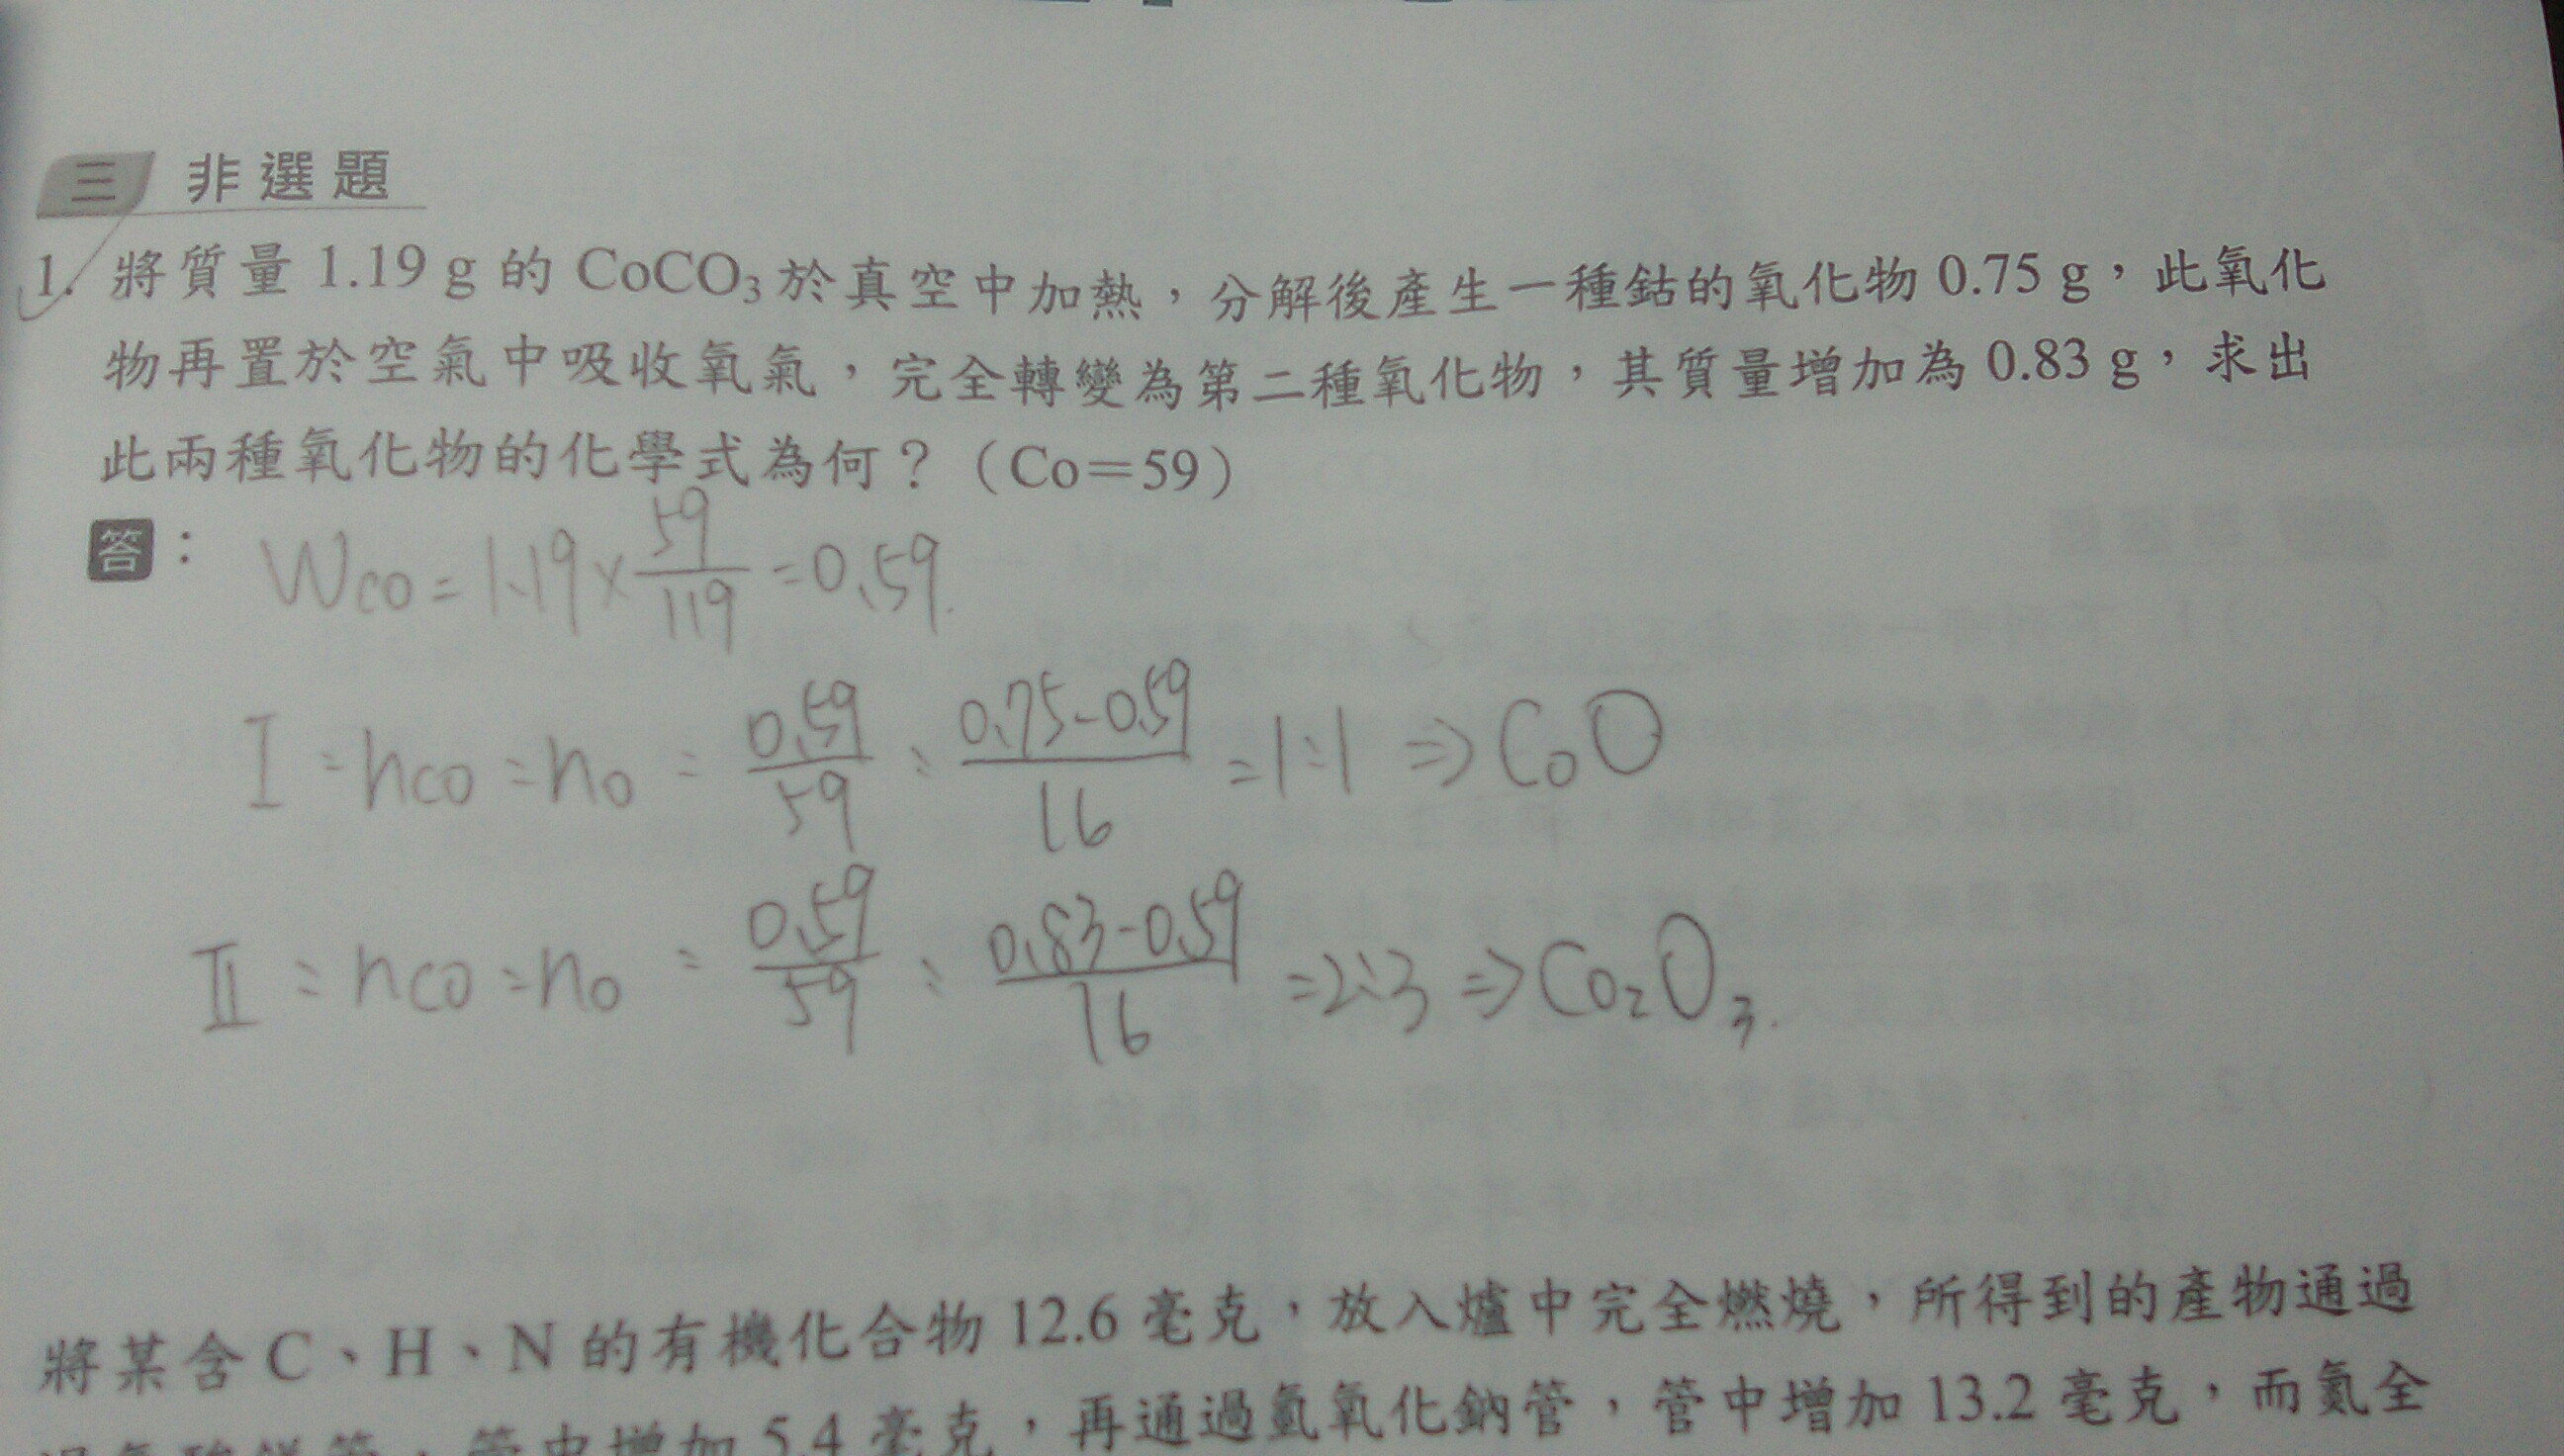 三 非選題
1. 將質量 1.19 g 的 CoCO₃ 於真空中加熱，分解後產生一種鈷的氧化物 0.75 g，此氧化
物再置於空氣中吸收氧氣，完全轉變為第二種氧化物，其質量增加為 0.83 g，求出
此兩種氧化物的化學式為何？（Co＝59）
答： Wco = 1.19 × 59/119 = 0.59
I : nco : no = 0.59/59 : (0.75-0.59)/16 = 1:1 ⇒ CoO
II : nco : no = 0.59/59 : (0.83-0.59)/16 = 2:3 ⇒ Co₂O₃.
將某含 C、H、N 的有機化合物 12.6 毫克，放入爐中完全燃燒，所得到的產物通過
管中增加 5.4 毫克，再通過氫氧化鈉管，管中增加 13.2 毫克，而氮全